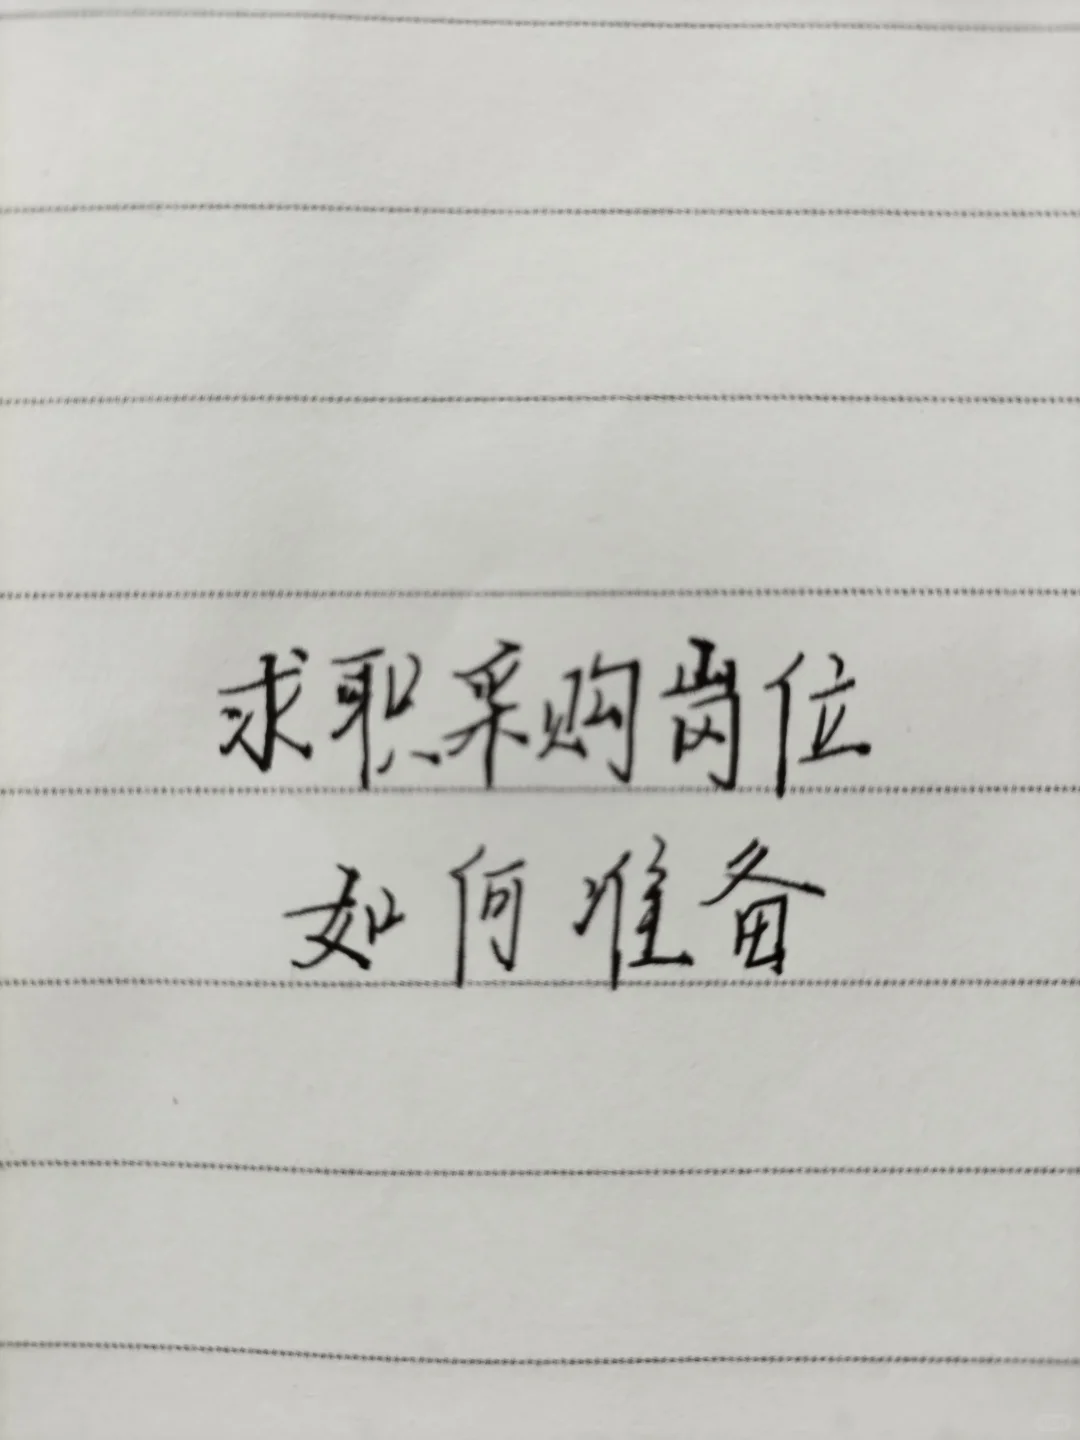 求职采购岗位
如何准备